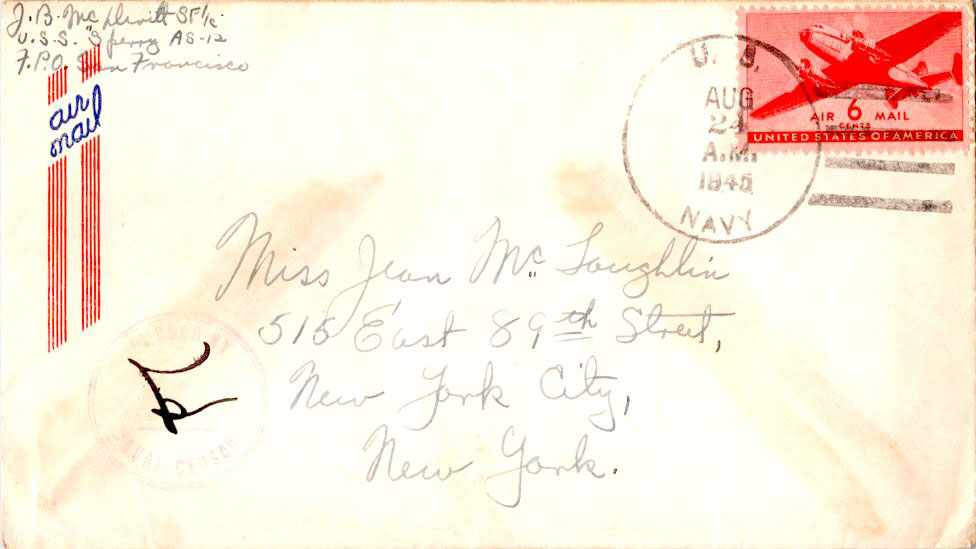 J. B. McDevitt SF1/c
U.S.S. "Sperry AS-12
F.P.O. San Francisco
air
mail
U. S.
AUG
24
A.M.
1945
NAVY
AIR 6 MAIL
CENTS
UNITED STATES OF AMERICA
Miss Jean Mc Loughlin
515 East 89th Street,
New York City,
New York.
PASSED BY
NAVAL CENSOR